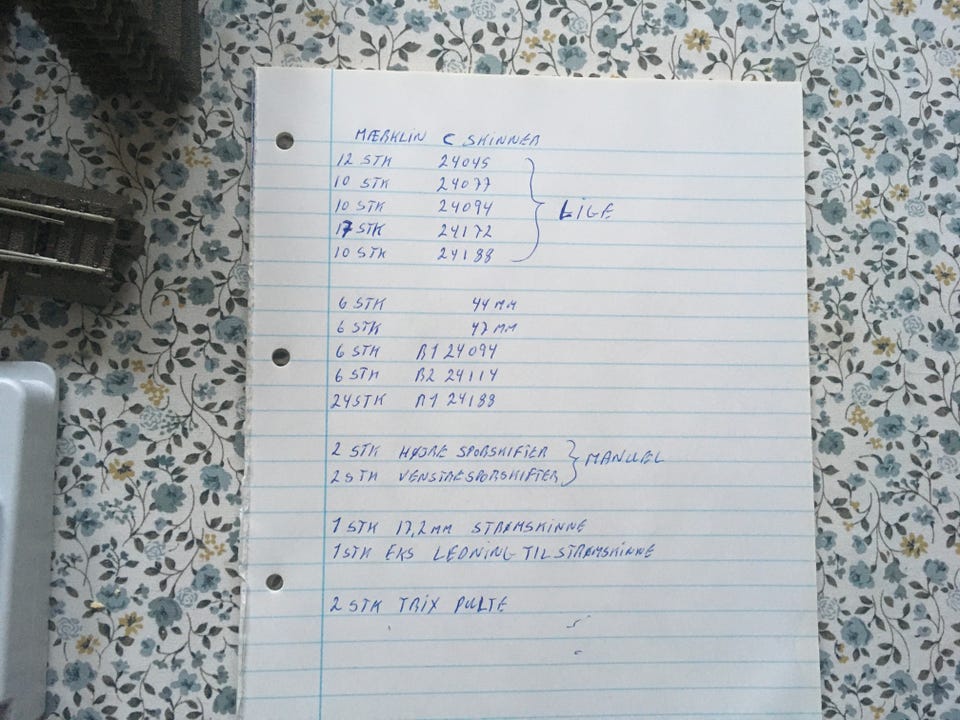 MÆRKLIN C SKINNER
12 STK 24045
10 STK 24077
10 STK 24094
17 STK 24172
10 STK 24188
LIGE
6 STK 44 MM
6 STK 47 MM
6 STK R1 24094
6 STK R2 24114
24 STK R1 24188
2 STK HØJRE SPORSKIFTER
2 STK VENSTRE SPORSKIFTER
MANUEL
1 STK 17,2 MM STRØMSKINNE
1 STK EKS LEDNING TIL STRØMSKINNE
2 STK TRIX PULTE